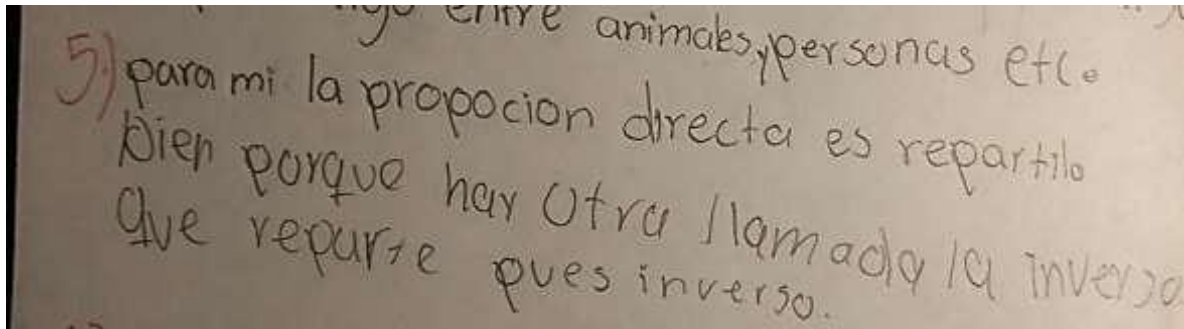 entre animales, personas etc.
5.) para mi la propocion directa es repartilo
bien porque hay otra llamada la inverso
que reparte pues inverso.